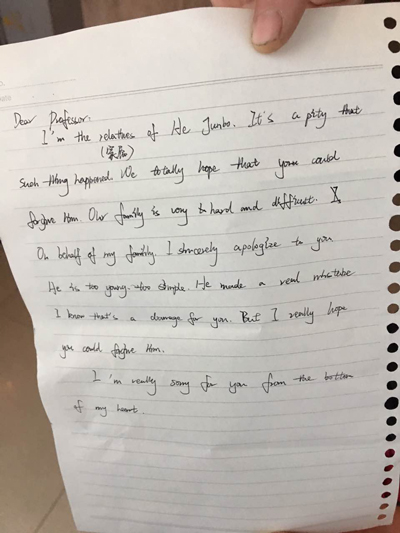 Dear Professor.
I'm the relatives of He Junbo. It's a pity that
(家属)
such thing happened. We totally hope that you could
forgive him. Our family is very hard and difficult.
On behalf of my family. I sincerely apologize to you
He is too young. too simple. He made a real mistake
I know that's a damage for you. But I really hope
you could forgive him.
I'm really sorry for you from the bottom
of my heart.